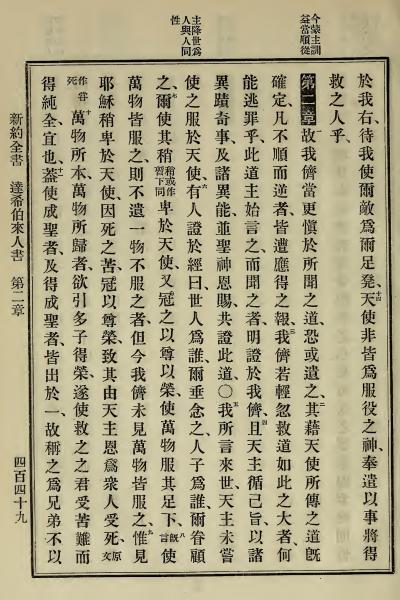 今蒙主訓
益當順從
主降世爲
人與人同
性
於我右待我使爾敵爲爾足凳、十四天使非皆爲服役之神、奉遣以事將得
救之人乎、
第二章一故我儕當更愼於所聞之道、恐或遺之、二其藉天使所傳之道既
確定、凡不順而逆者、皆遭應得之報、三我儕若輕忽救道如此之大者、何
能逃罪乎、此道主始言之、而聞之者、明證於我儕、四且天主循己旨、以諸
異蹟奇事、及諸異能、並聖神恩賜、共證此道、〇五我所言來世、天主未嘗
使之服於天使、六有人證於經曰、世人爲誰、爾垂念之、人子爲誰、爾眷顧
之、七爾使其稍稍或作暫下同卑於天使、又冠之以尊以榮、使萬物服其足下、八既言使
萬物皆服之、則不遺一物不服之者、但今我儕未見萬物皆服之、九惟見
耶穌稍卑於天使、因死之苦、冠以尊榮、致其由天主恩爲衆人受死、原文
作嘗死十萬物所本、萬物所歸者、欲引多子得榮、遂使救之之君受苦難而
得純全、宜也、十一蓋使成聖者、及得成聖者、皆出於一、故稱之爲兄弟不以
新約全書　達希伯來人書　第二章　四百四十九